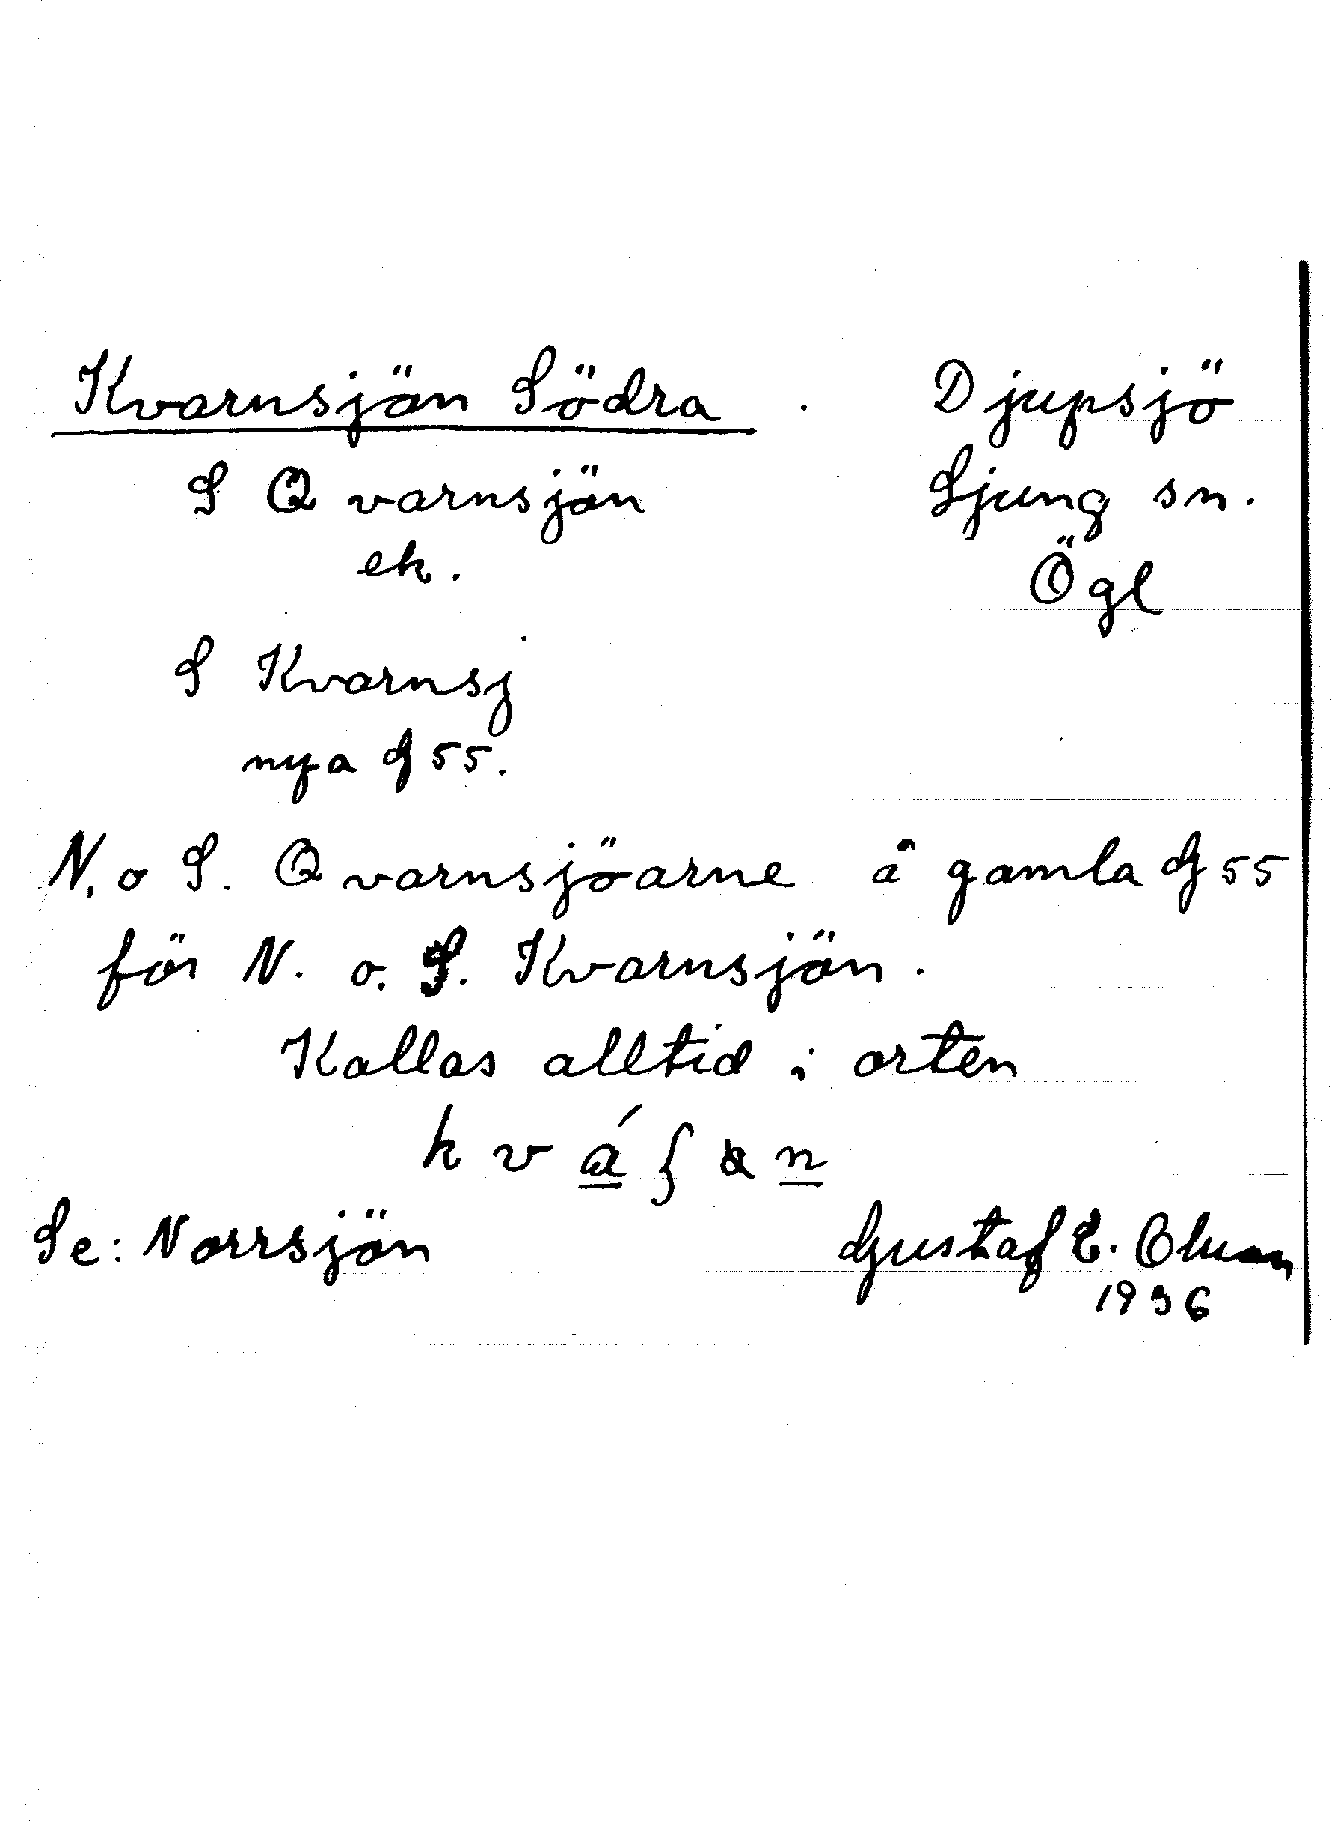 Kvarnsjön Södra . Djupsjö
S Qvarnsjön Ljung sn.
ek. Ögl
S Kvarnsj
nya G55.
N. o S. Qvarnsjöarne å gamla G55
för N. o. S. Kvarnsjön.
Kallas alltid i orten
Se: Norrsjön Gustaf E.
1936